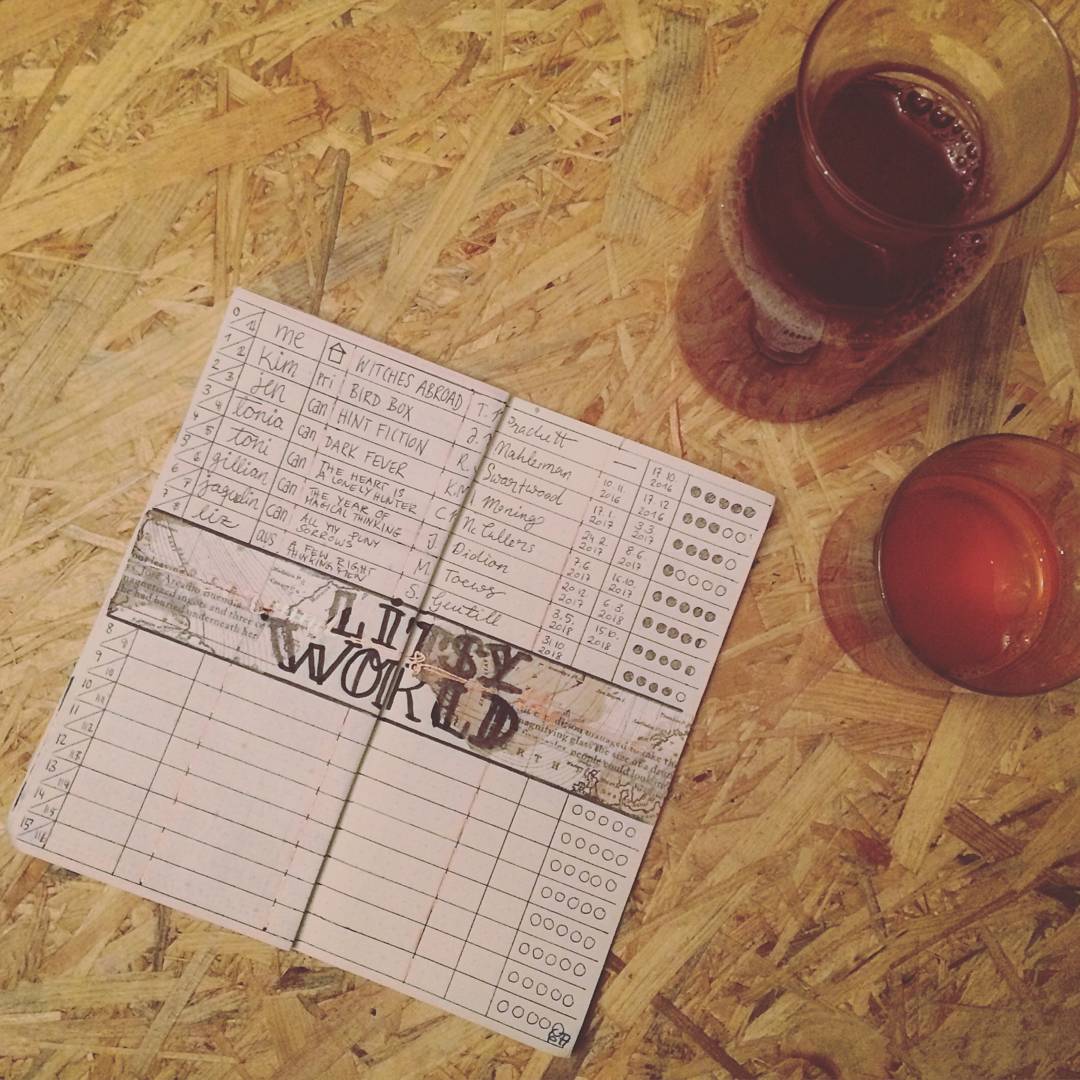 0 me WITCHES ABROAD T. Prachett — 17.10. 2016
1 Kim Pri BIRD BOX J. Mahlerman 10.11. 2016 17.12. 2016
2 jen can HINT FICTION R. Swartwood 17.1. 2017 3.3. 2017
3 tonia can DARK FEVER K.M. Moning 24.2. 2017 8.6. 2017
4 toni can THE HEART IS A LONELY HUNTER C. McCullers 7.6. 2017 16.10. 2018
5 gillian can THE YEAR OF MAGICAL THINKING J. Didion 20.12. 2017 6.3. 2018
6 jaquelin can ALL MY PUNY SORROWS M. Toews 3.5. 2018 15.6. 2018
7 liz aus A FEW RIGHT THINKING MEN S. Gentill 31.10 2018
magnetized ingots and three of
he had buried underneath her
LITSY
WORLD
magnifying glass the size of a
people could
R T H
8
9
10
11
12
13
14
15